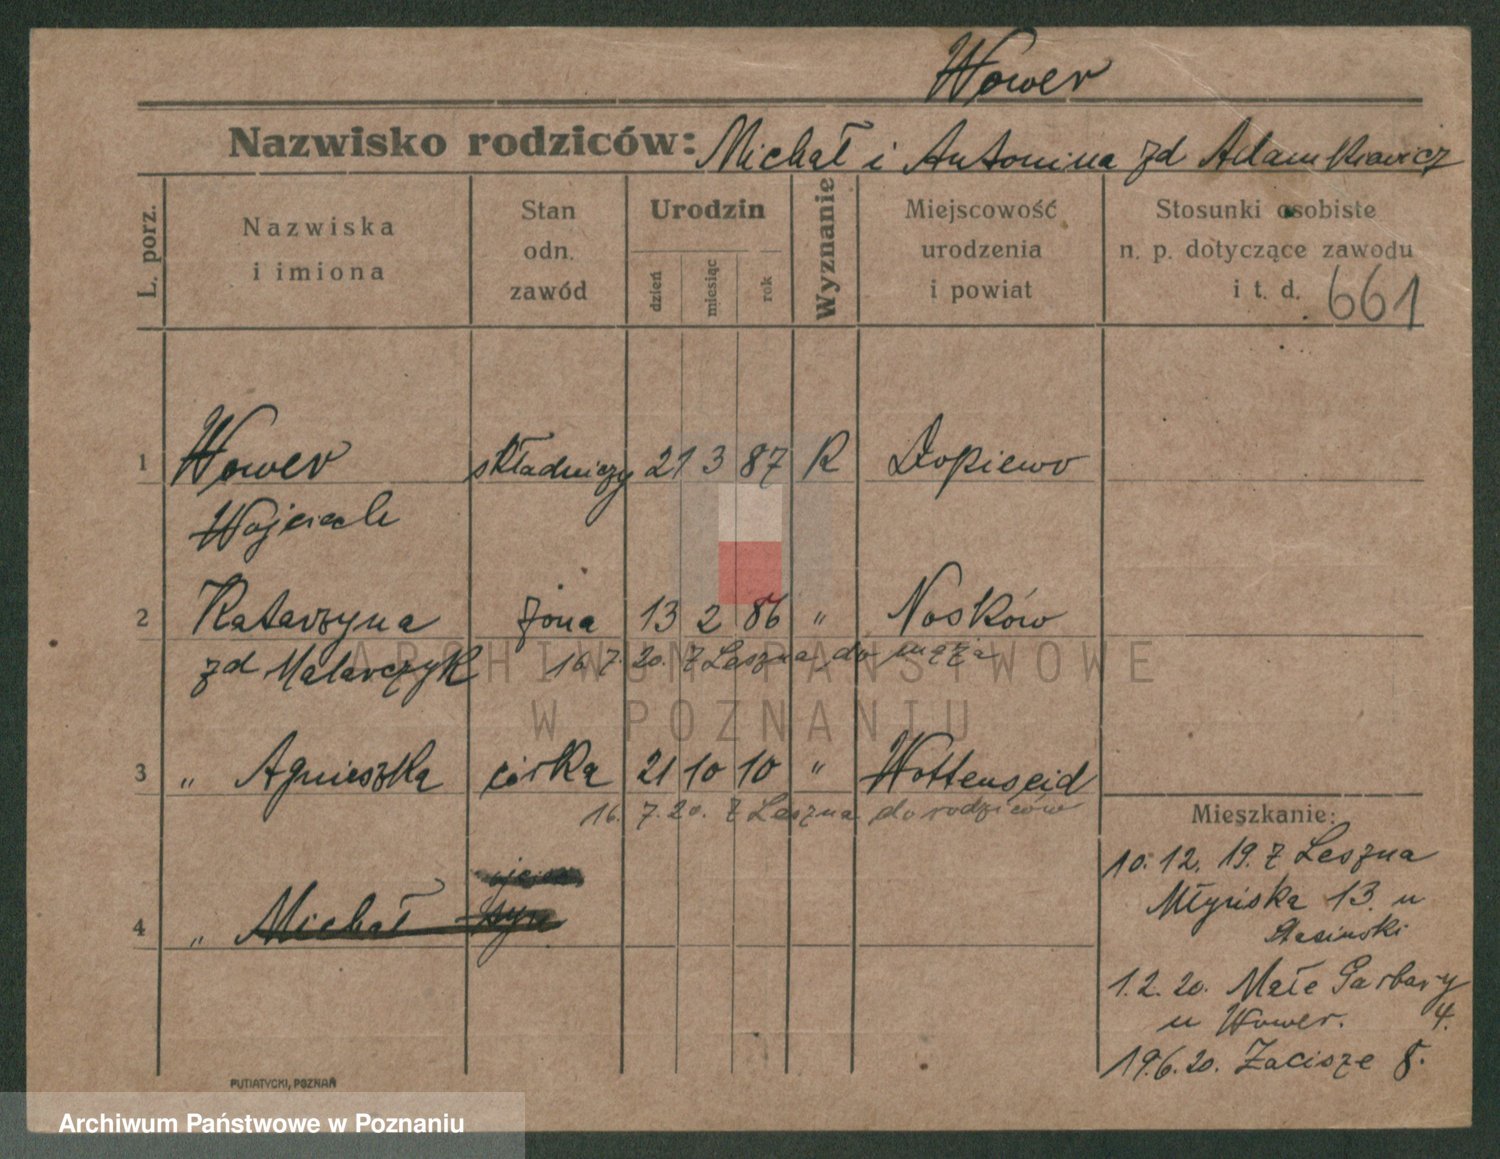 Wower
Nazwisko rodziców: Michał i Antonina zd Adamkiewicz
L. porz.
Nazwiska
i imiona
Stan
odn.
zawód
Urodzin
dzień
miesiąc
rok
Wyznanie
Miejscowość
urodzenia
i powiat
Stosunki osobiste
n. p. dotyczące zawodu
i t. d. 661
1 Wower składniczy 21 3 87 R Dopiewo
Wojciech
2 Katarzyna żona 13 2 86 " Nosków
zd Matarczyk 16. 7. 20. z Leszna do męża
3 " Agnieszka córka 21 10 10 " Wottenscid
16. 7. 20. z Leszna do rodziców
4 " Michał syn
Mieszkanie:
10. 12. 19. z Leszna
Młyńska 13. u
Stasinski
1. 2. 20. Małe Garbary
u Wower. 4.
19.6.20. Zacisze 8.
PUTIATYCKI, POZNAŃ
ARCHIWUM PAŃSTWOWE
W POZNANIU
Archiwum Państwowe w Poznaniu